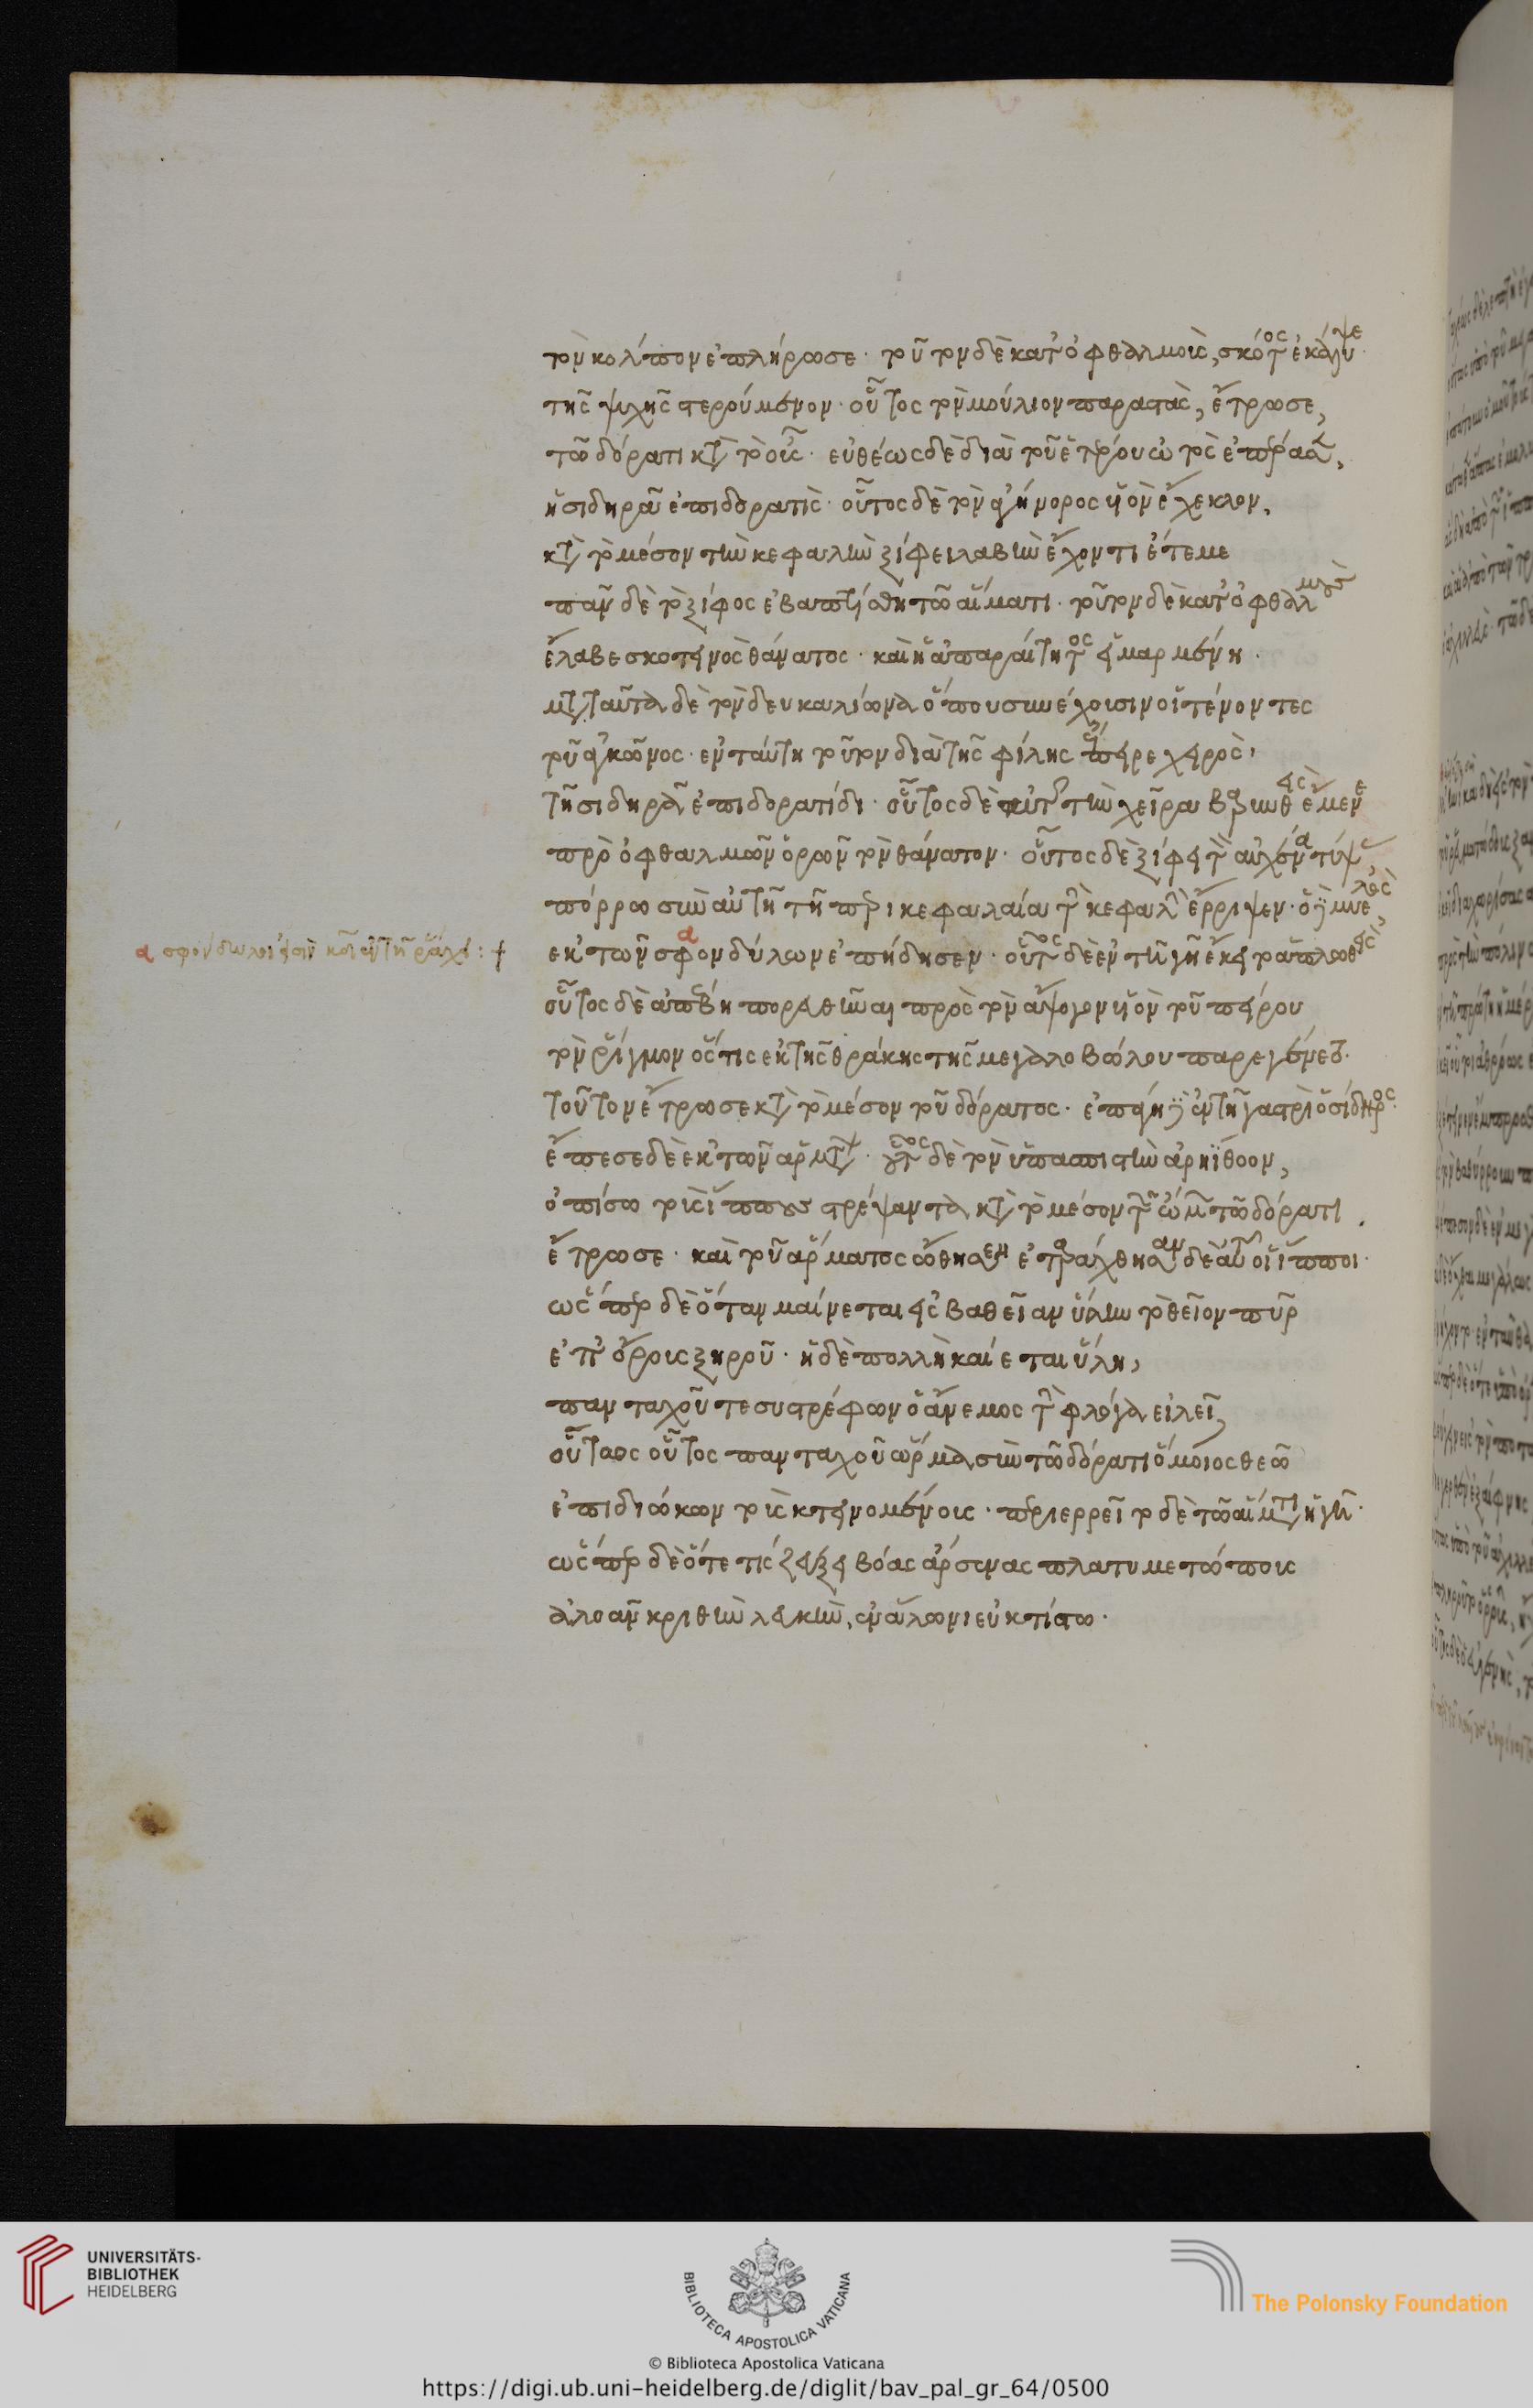 τὸν κόλπον ἐπλήρωσε· τοῦτον δὲ κατ' ὀφθαλμοὺς, σκότος ἐκάλυψε
τῆς ψυχῆς στερούμενον· οὗτος τὸν μούλιον παραστὰς, ἔτρωσε,
τῶ δόρατι κατὰ τὸ οὖς· εὐθέως δὲ διὰ τοῦ ἑτέρου ὠτὸς ἐπέρασε,
ἡ σιδηρᾶ ἐπιδορατὶς· οὗτος δὲ τὸν ἀγήνορος υἱὸν ἔχεκλον,
κατὰ τὸ μέσον τὴν κεφαλὴν ξίφει λαβὴν ἔχοντι ἔτεμε
πᾶν δὲ τὸ ξίφος ἐβαπτίσθη τῶ αἵματι· τοῦτον δὲ κατ' ὀφθαλμοὺς
ἔλαβε σκοτεινὸς θάνατος· καὶ ἡ ἀπαραίτητος εἱμαρμένη·
μετὰ ταῦτα δὲ τὸν δευκαλίωνα ὅπου συνέχουσιν οἱ τένοντες
τοῦ ἀγκῶνος· ἐνταύθη τοῦτον διὰ τῆς φίλης ἔπειρε χειρὸς,
τῆ σιδηρᾶ ἐπιδορατίδι· οὗτος δὲ αὐτὸν τὴν χεῖρα βαρυνθεὶς ἔμενε
πρὸ ὀφθαλμῶν ὁρῶν τὸν θάνατον· οὗτος δὲ ξίφει τὸν αὐχένα τύψας,
πόρρω σὺν αὐτῆ τῆ περικεφαλαία τὴν κεφαλὴν ἔρριψεν· ὁ γὰρ μυελὸς,
ἐκ τῶν σφονδύλων ἐπήδησεν· οὗτος δὲ ἐν τῆ γῆ ἔκειτο ἁπλωθείς
οὗτος δὲ ἀπέβη πορευθῆναι πρὸς τὸν ἄψογον υἱὸν τοῦ πείρου
τὸν ῥίγμον ὅστις ἐκ τῆς θράκης τῆς μεγαλοβώλου παρεγένετο·
τοῦτον ἔτρωσε κατὰ τὸ μέσον τοῦ δόρατος· ἐπάγη γὰρ ἐν τῆ γαστρὶ ὁ σίδηρος·
ἔπεσε δὲ ἐκ τῶν ἁρμάτων· οὗτος δὲ τὸν ὑπασπιστὴν ἀρηΐθοον,
ὀπίσω τοὺς ἵππους στρέψαντα κατὰ τὸ μέσον τῶν ὤμων τῶ δόρατι
ἔτρωσε· καὶ τοῦ ἅρματος ὤθησεν ἐταράχθησαν δὲ αὐτοῦ οἱ ἵπποι·
ὥσπερ δὲ ὅταν μαίνεται εἰς βαθεῖαν ὕλην τὸ θεῖον πῦρ
ἐπ' ὄρους ξηροῦ· ἡ δὲ πολλὴ καίεται ὕλη,
πανταχοῦ τε συστρέφων ὁ ἄνεμος τὴν φλόγα εἰλεῖ,
οὕτως οὗτος πανταχοῦ ὥρμα σὺν τῶ δόρατι ὅμοιος θεῶ
ἐπιδιώκων τοὺς κτεινομένους· περιερρεῖτο δὲ τῶ αἵματι ἡ γῆ·
ὥσπερ δὲ ὅτε τίς ζεύξει βόας ἄρσενας πλατυμετώπους
ἀλοᾶν κριθὴν λευκὴν, ἐν ἅλωνι εὐκτίστω·
α σφόνδυλοι εἰσὶν
UNIVERSITÄTS-
BIBLIOTHEK
HEIDELBERG
BIBLIOTECA APOSTOLICA VATICANA
The Polonsky Foundation
© Biblioteca Apostolica Vaticana
https://digi.ub.uni-heidelberg.de/diglit/bav_pal_gr_64/0500